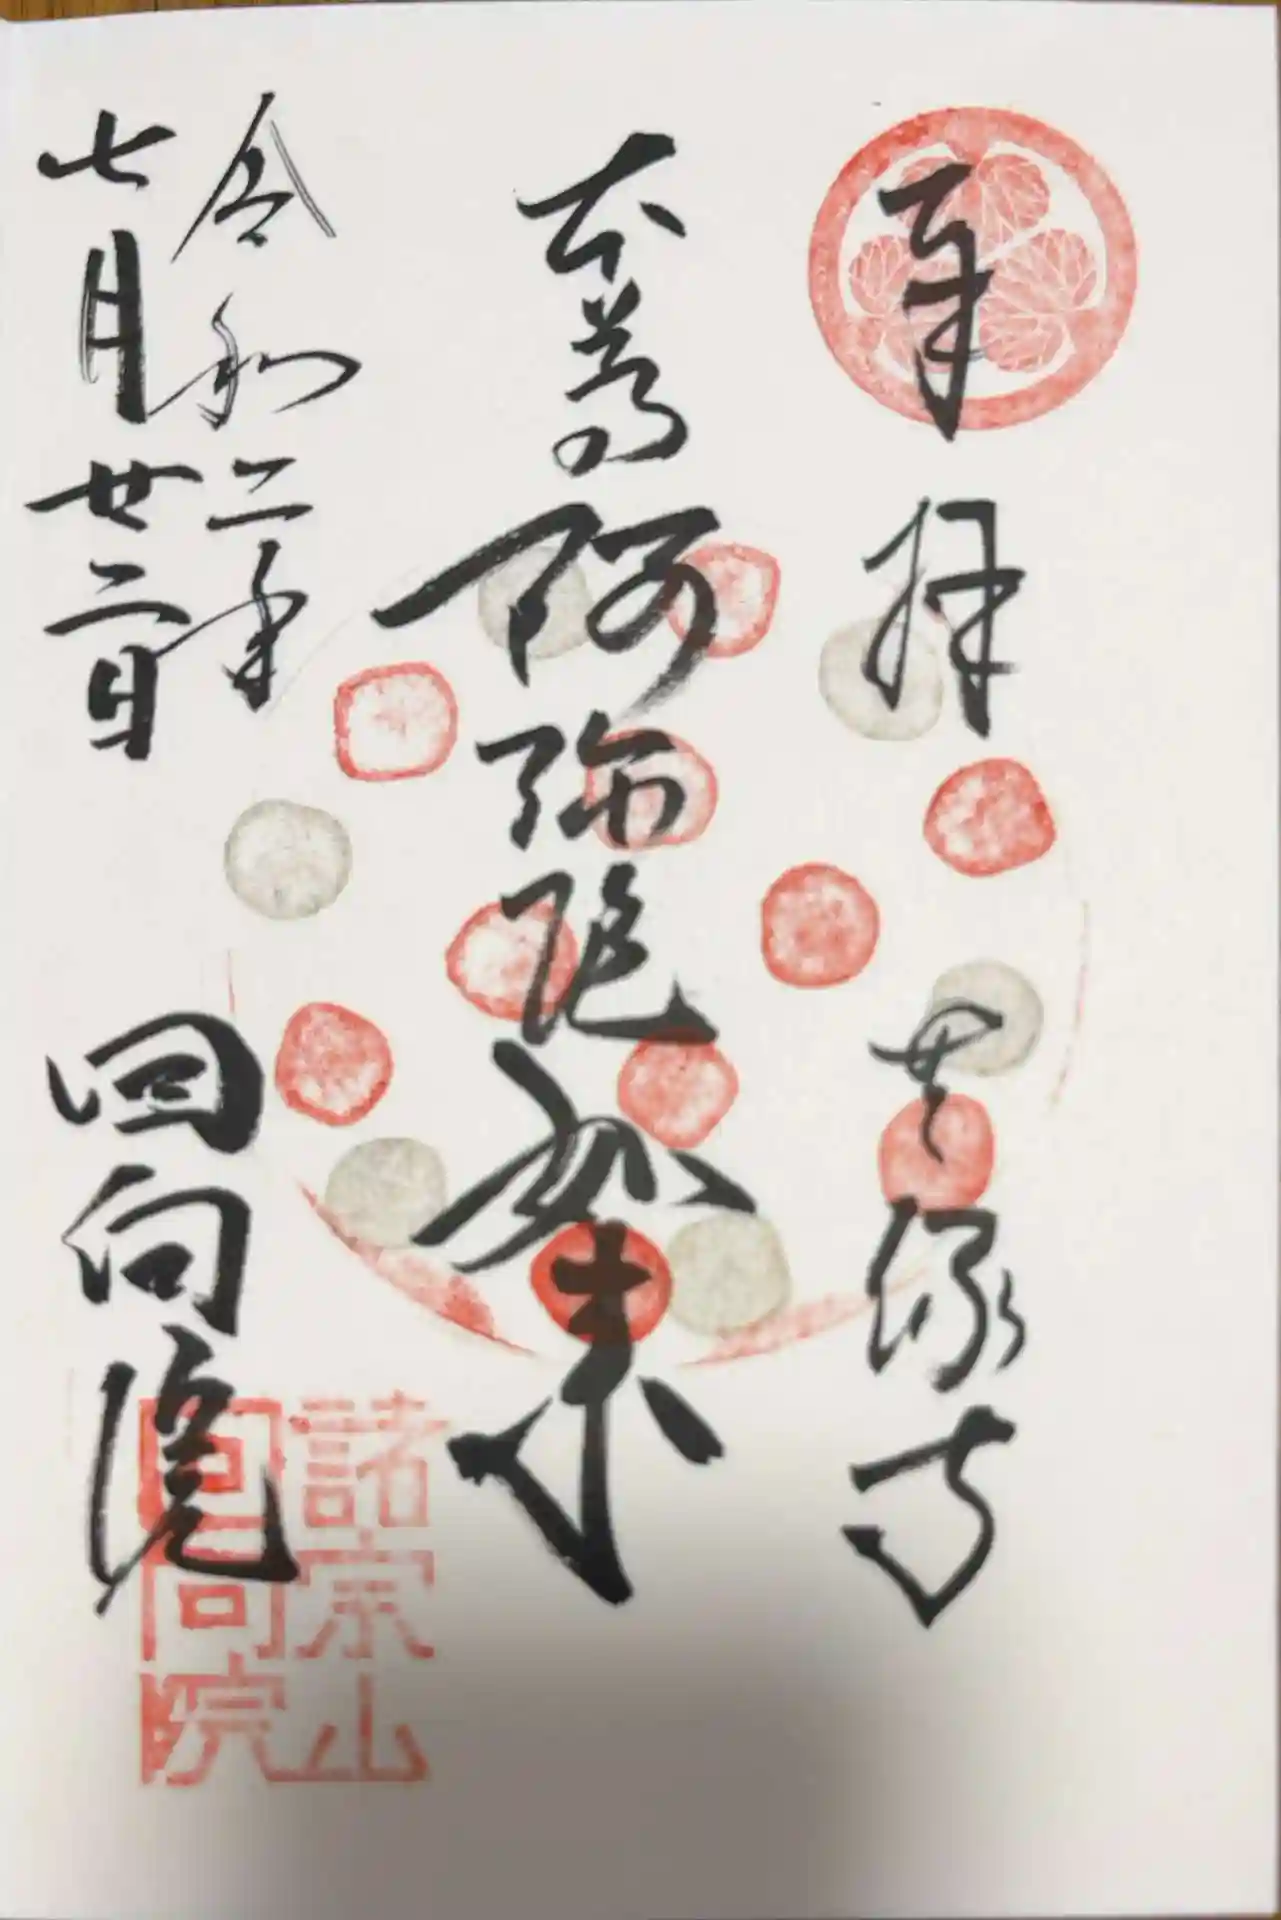 奉拝 無縁寺
本尊阿弥陀如来
令和二年
七月廿二日
回向院
諸宗山
回向院